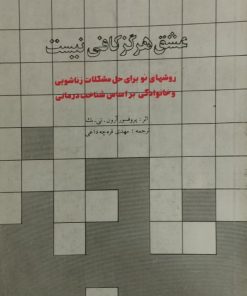 عشق هرگز کافی نیست
روشهای نو برای حل مشکلات زناشویی
و خانوادگی بر اساس شناخت درمانی
اثر: پروفسور آرون. تی. بک
ترجمه: مهدی قرچه داغی